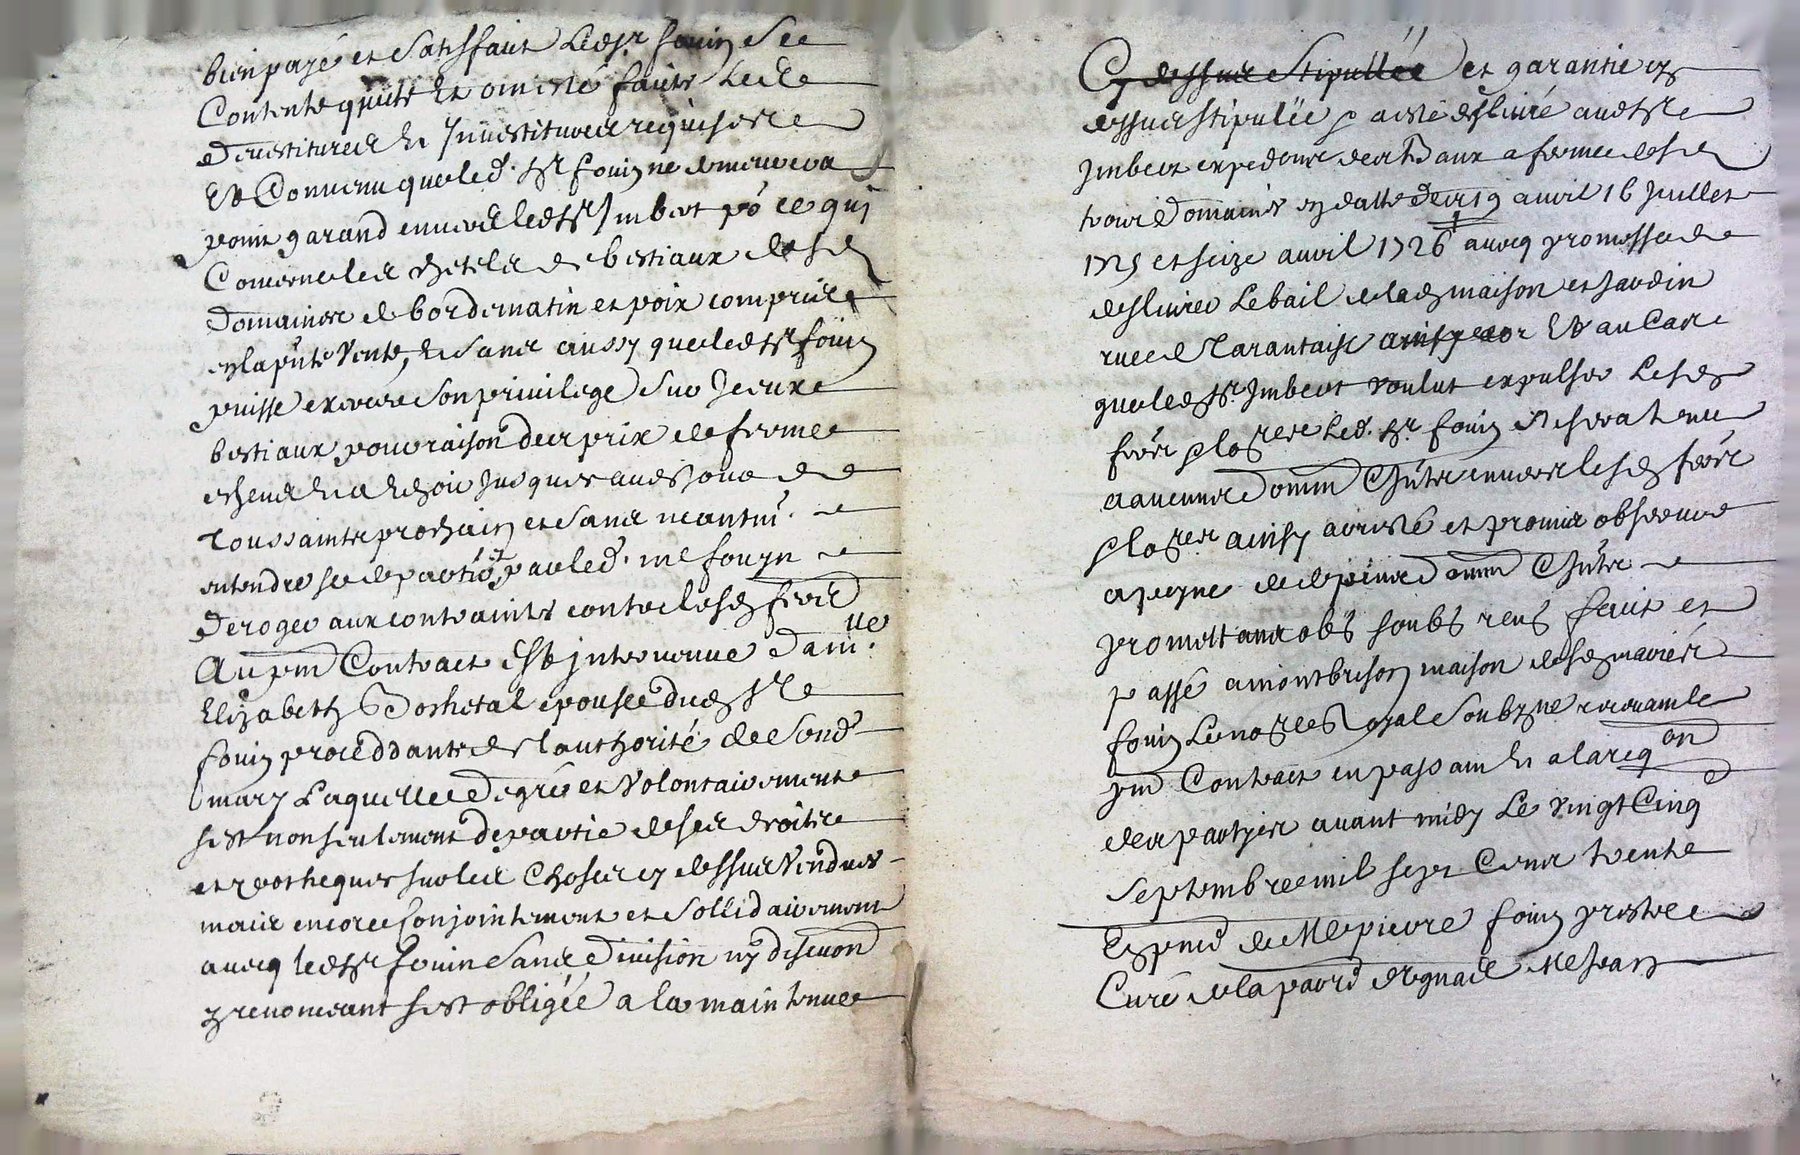 bien payé et satisfait Ledt sr fouin Sen
Contente quitte Et omisté faitte Les
devestitures Et Investitures requises
Et Convenu que led. sr fouin ne demeurera
point garand envers ledt sr Imbert po ce qui
Concerne les chetels de bestiaux desd
domaines de bordematin et poix comprise
en la pnte Vente, Et Sans aussy que ledt sr fouin
puisse exercer Son privilege Sur Iceux
bestiaux pour raison des prix de ferme
escheus Et a Echoir Jusques au jour de
Toussaints prochain et Sans neantm.
entendre se departir par led. me fouyn
deroger aux contraintes contre lesd freres
Au pnt Contract Est intervenue dam.lle
Elizabeth Boshetal epouse dud sr
fouin proceddante de l'authorité de Sond
mary Laquelle de gré et Volontairement
s'est non seulement departie de ses droits
et ypotheques sur les Choses cy dessus Vendues
mais encore Conjointement et Sollidairement
avecq ledt sr fouin Sans division ny discution
y renoncant s'est obligée a la maintenue
Cy dessus Stipullée et garantie cy
dessus stipulée p a esté deslivré audt sr
Imbert expeditions des Baux a ferme desd
trois Domaines en datte des 19 avril 16 Juillet
1725 et seize avril 1726 avecq promesse de
deslivrer Le bail de lad maison et Jardin
rue de Tarantaise Et au Cas
que led sr Imbert voulut expulser Lesd
frères Led. sr fouin sera tenu
a aucuns dom Intr envers lesd frères
ainsy acresté et promis observer
a peyne de de pens dom Intr
promettant obs soubs rens fait et
passé a montbrison maison desd mariés
fouin Le no.re Royal Soubzne recevant le
pnt Contract en passant Et a la req.on
des partyes avant midy Le vingt Cinq
Septembre mil sept Cens trente
En pnce de Me pierre fouin prestre
Curé de la parr d'ognac Me Jean